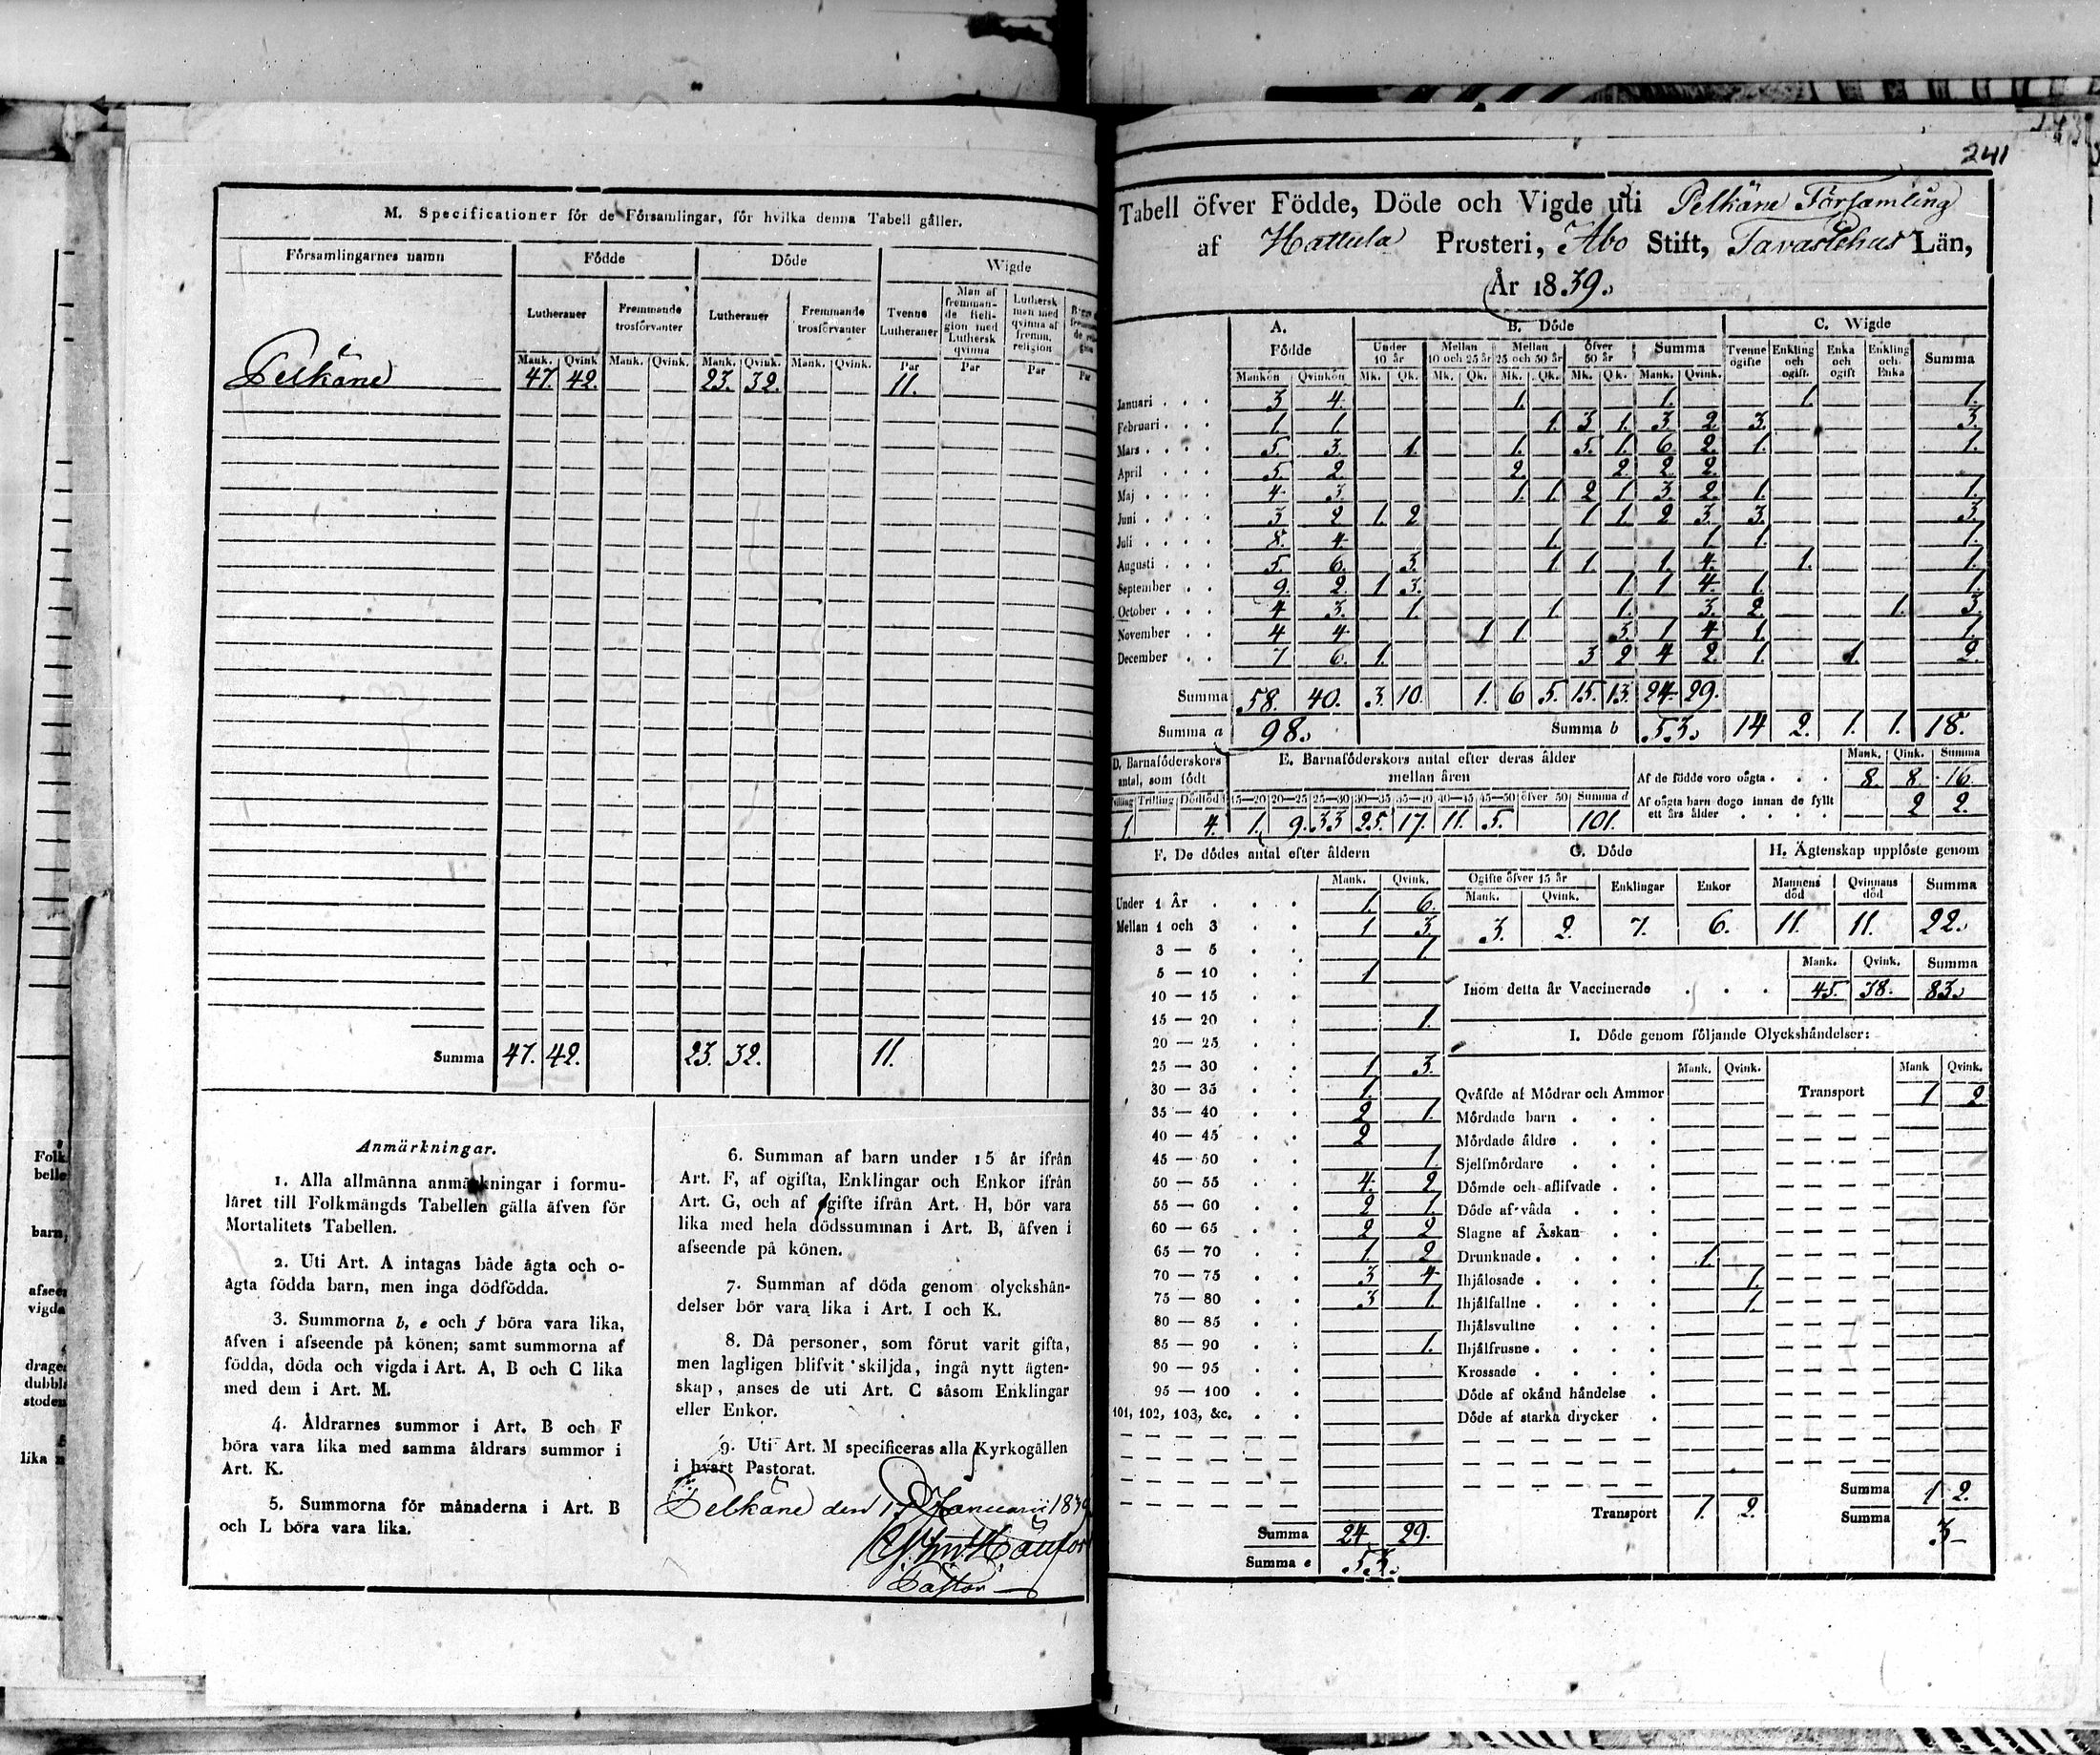 M. Specificationer för de Församlingar, för hvilka denna Tabell gäller.
Församlingarnes namn Födde Döde Wigde
Lutheraner Fremmande trosförvanter Lutheraner Fremmande trosförvanter Tvenne Lutheraner Man af fremmande Religion med Luthersk qvinna Luthersk man med qvinna af fremm. religion
Mank. Qvink. Mank. Qvink. Mank. Qvink. Mank. Qvink. Par Par Par
Pelkäne 47. 42. 23. 32. 11.
Summa 47. 42. 23. 32. 11.
Anmärkningar.
1. Alla allmänna anmärkningar i formu-
läret till Folkmängds Tabellen gälla äfven för
Mortalitets Tabellen.
2. Uti Art. A intagas både ägta och o-
ägta födda barn, men inga dödfödda.
3. Summorna b, e och f böra vara lika,
äfven i afseende på könen; samt summorna af
födda, döda och vigda i Art. A, B och C lika
med dem i Art. M.
4. Åldrarnes summor i Art. B och F
böra vara lika med samma åldrars summor i
Art. K.
5. Summorna för månaderna i Art. B
och L böra vara lika.
6. Summan af barn under 15 år ifrån
Art. F, af ogifta, Enklingar och Enkor ifrån
Art. G, och af gifte ifrån Art. H, bör vara
lika med hela dödssumman i Art. B, äfven i
afseende på könen.
7. Summan af döda genom olyckshän-
delser bör vara lika i Art. I och K.
8. Då personer, som förut varit gifta,
men lagligen blifvit skiljda, ingå nytt ägten-
skap, anses de uti Art. C såsom Enklingar
eller Enkor.
9. Uti Art. M specificeras alla Kyrkogällen
i hvart Pastorat.
Pelkäne den Januarii 1839
Pastor
241
Tabell öfver Födde, Döde och Vigde uti Pelkäne Församling
af Hattula Prosteri, Åbo Stift, Tavastehus Län,
År 1839.
A. Födde B. Döde C. Wigde
Under 10 år Mellan 10 och 25 år Mellan 25 och 50 år öfver 50 år Summa Tvenne ogifte Enkling och ogift. Enka och ogift Enkling och Enka Summa
Mankön Qvinkön Mk. Qk. Mk. Qk. Mk. Qk. Mk. Qk. Mank. Qvink.
Januari 3 4. 1. 1. 1. 1.
Februari 1. 1 1. 3 1. 3 2. 3. 3.
Mars 5. 3. 1. 1. 5. 1. 6. 2. 1. 1.
April 5. 2. 2. 2. 2. 2.
Maj 4. 3. 1. 1. 2 1 3. 2. 1. 1.
Juni 3 2 1. 2 1 1. 2 3. 3. 3.
Juli 8. 4. 1. 1 1. 1.
Augusti 5. 6. 3. 1 1. 1. 4. 1. 1.
September 9. 2. 1 3. 1 1 4. 1. 1.
October 4 3. 1. 1 1. 3. 2. 1. 3.
November 4 4 1 1. 3. 1 4 1. 1.
December 7 6. 1. 3 2 4 2. 1. 1. 2.
Summa 58. 40. 3. 10. 1. 6 5. 15. 13. 24. 29.
Summa a 98. Summa b 53. 14 2. 1. 1. 18.
D. Barnaföderskors antal, som födt E. Barnaföderskors antal efter deras ålder mellan åren
Tvilling Trilling Dödföd 15—20 20—25 25—30 30—35 35—40 40—45 45—50 öfver 50 Summa d
1. 4. 1. 9. 33 25. 17. 11. 5. 101.
Mank. Qink. Summa
Af de födde voro oägta 8. 8 16.
Af oägta barn dogo innan de fyllt
ett års ålder 2 2.
F. De dödes antal efter åldern
Mank. Qvink.
Under 1 År 1. 6.
Mellan 1 och 3 1 3
3 — 5 1.
5 — 10 1
10 — 15
15 — 20 1.
20 — 25
25 — 30 1 3.
30 — 35 1.
35 — 40 2 1.
40 — 45 2
45 — 50 1.
50 — 55 4. 2
55 — 60 2 1.
60 — 65 2 2
65 — 70 1. 2
70 — 75 3 4
75 — 80 3 1.
80 — 85
85 — 90 1.
90 — 95
95 — 100
101, 102, 103, &c.
Summa 24 29.
Summa e 53.
G. Döde H. Ägtenskap upplöste genom
Ogifte öfver 15 år Enklingar Enkor Mannens död Qvinnans död Summa
Mank. Qvink.
3. 2. 7. 6. 11. 11. 22.
Mank. Qvink. Summa
Inom detta år Vaccinerade 45. 38. 83.
I. Döde genom följande Olyckshändelser:
Mank. Qvink. Mank Qvink.
Qväfde af Mödrar och Ammor Transport 1 2
Mördade barn
Mördade äldre
Sjelfmördare
Dömde och aflifvade
Döde af våda
Slagne af Åskan
Drunknade 1.
Ihjälosade 1.
Ihjälfallne 1.
Ihjälsvultne
Ihjälfrusne
Krossade
Döde af okänd händelse
Döde af starka drycker
Summa 1 2.
Transport 1. 2. Summa 3